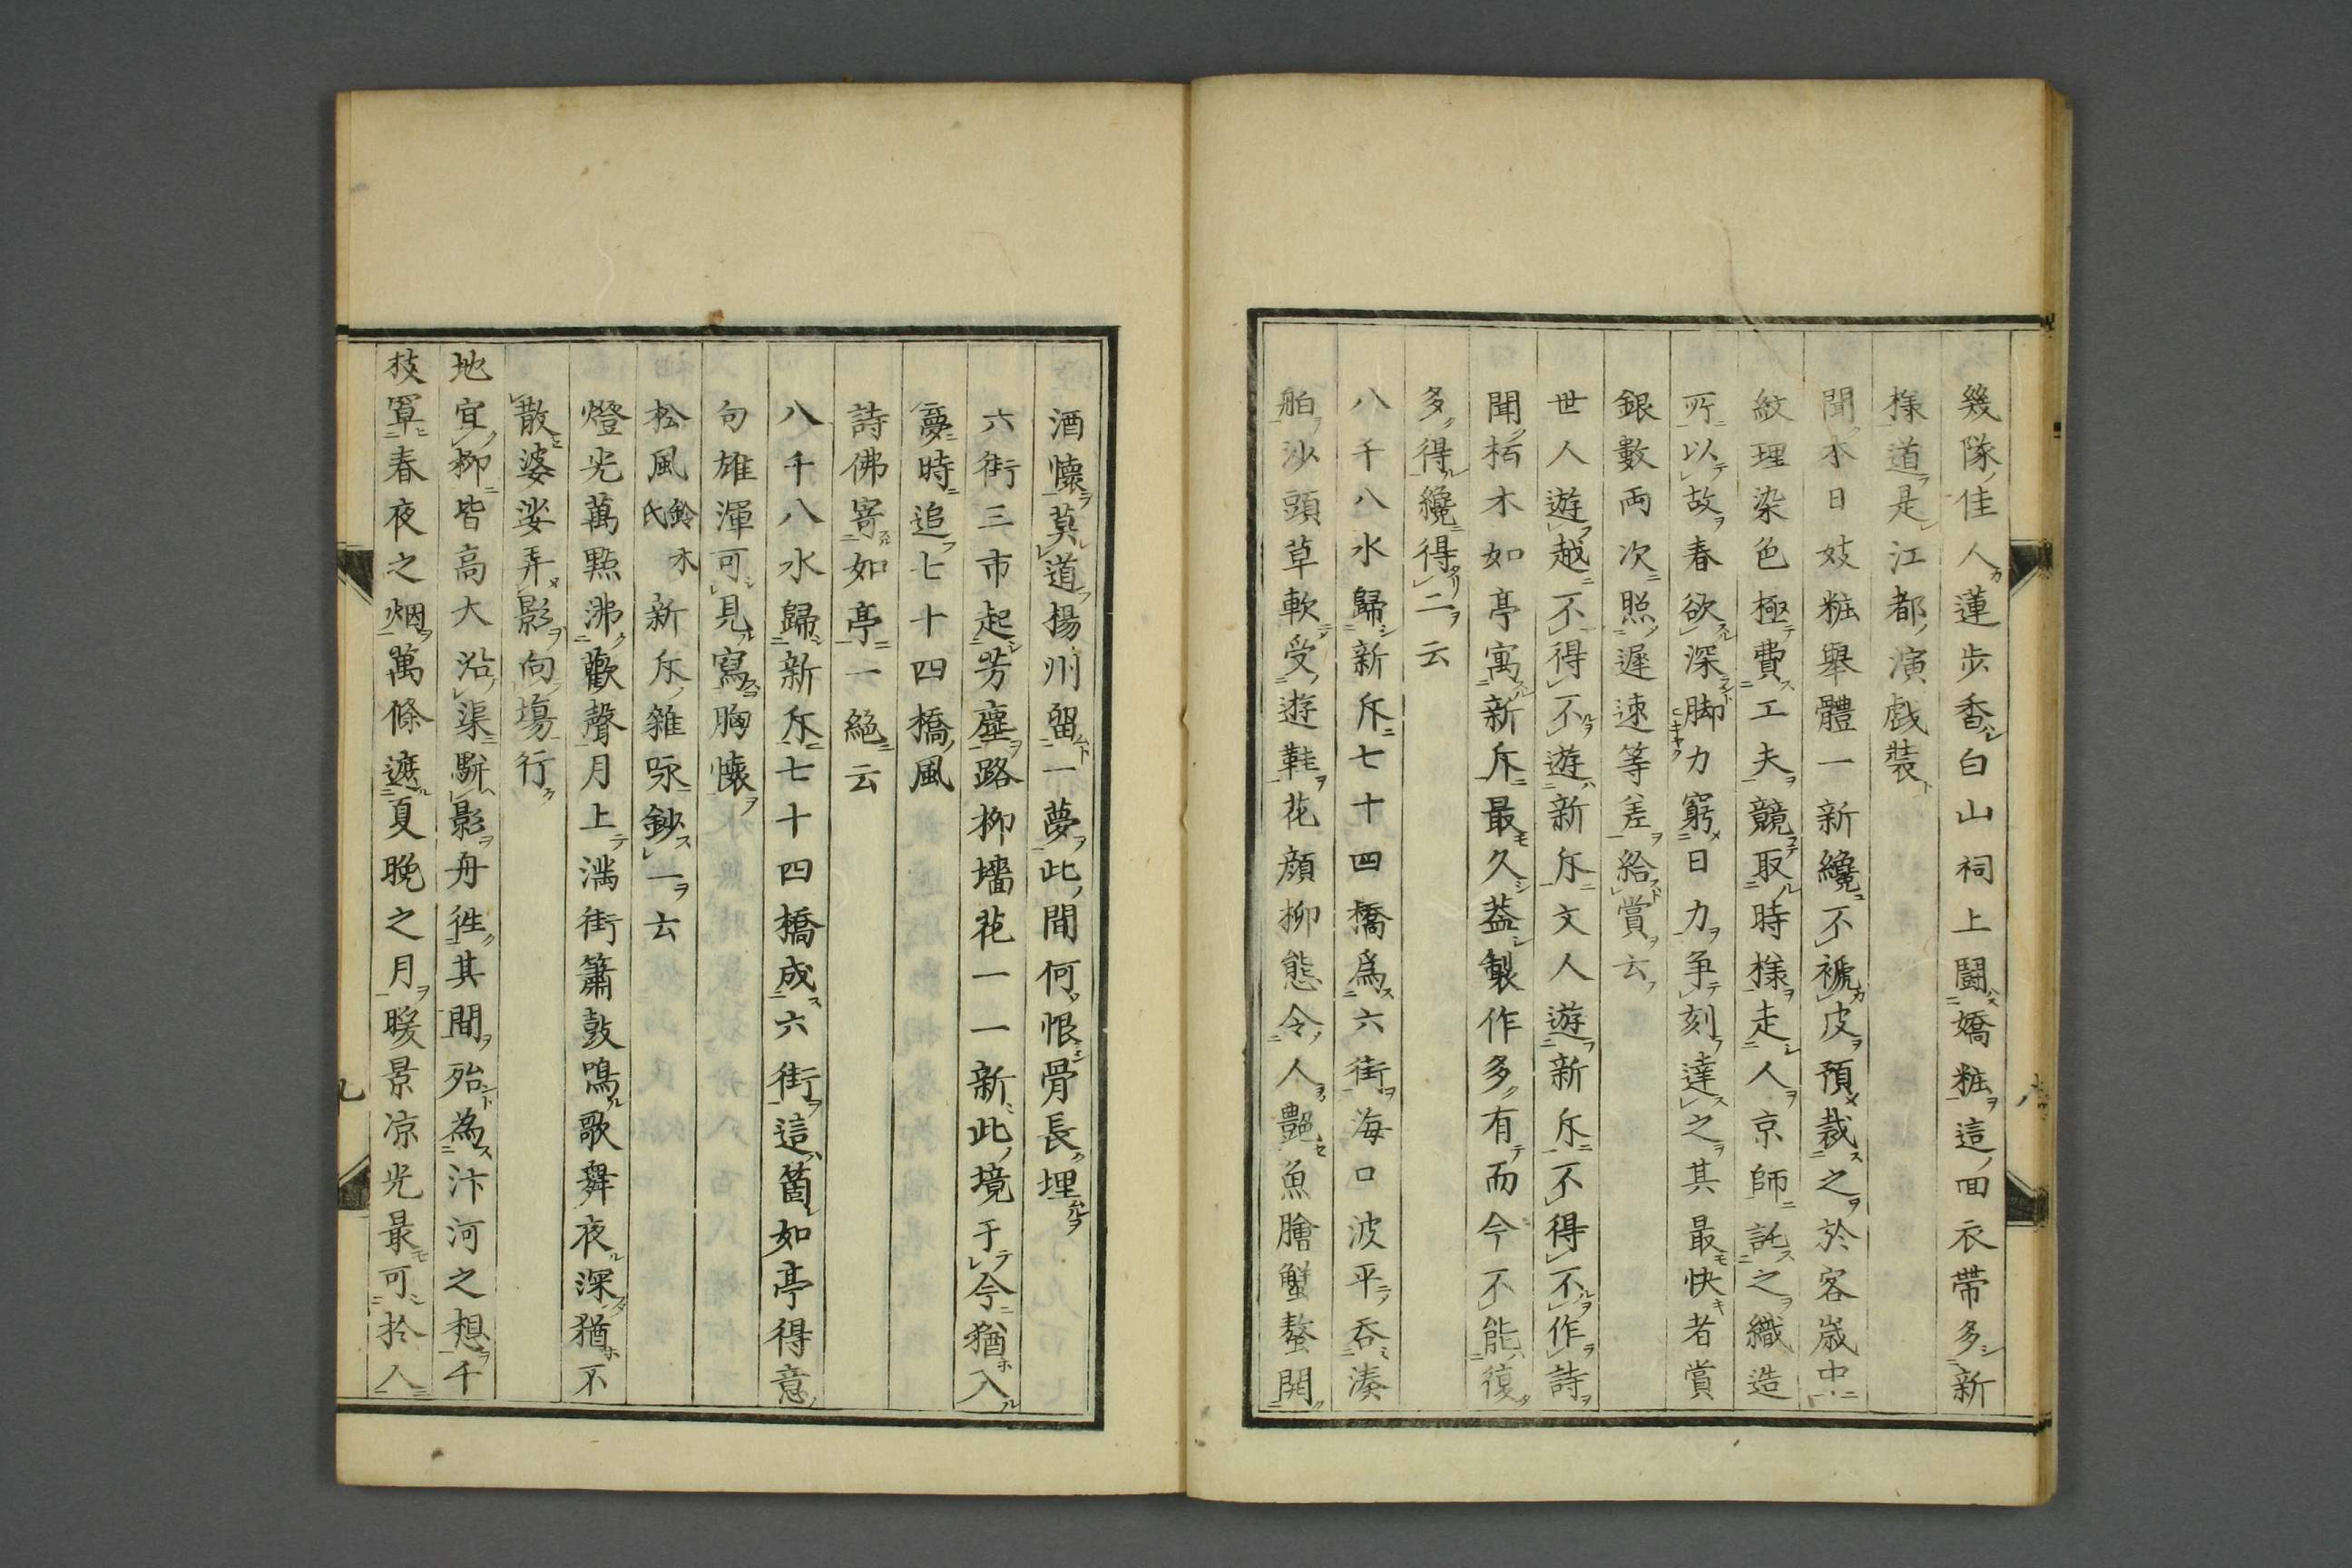 幾隊佳人蓮歩香白山祠上鬪嬌粧這囬衣帶多新
樣道是江都演戯裝
聞本日妓粧舉體一新纔不褫皮預裁之於客嵗中
紋理染色極費工夫競取時樣走人京師託之織造
所以故春欲深脚力窮日力争刻達之其最快者賞
銀數両次照遲速等差給賞云
世人遊越不得不遊新斥文人遊新斥不得不作詩
聞柘木如亭寓新斥最久葢製作多有而今不能復
多得纔得二云
八千八水歸新斥七十四橋爲六街海口波平呑湊
舶沙頭草軟受遊鞋花顔柳態令人艶魚膾蟹螯開
酒懷莫道揚州留一夢此間何恨骨長埋
六街三市起芳塵路柳墻花一一新此境于今猶入
夢時追七十四橋風
詩佛寄如亭一絕云
八千八水歸新斥七十四橋成六街這箇如亭得意
句雄渾可見寫胸懷
松風鈴木氏新斥雜咏鈔一云
燈光萬㸃沸歡聲月上満街簫鼓鳴歌舞夜深猶不
散婆娑弄影向塲行
地宜柳皆高大沿渠駢影舟徃其間殆為汴河之想千
枝罩春夜之烟萬條遮夏晚之月暖景凉光最可於人
九